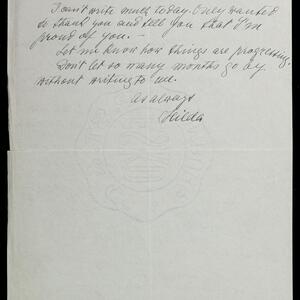 I can't write much today. Only wanted
to thank you and tell you that I'm
proud of you. —
Let me know how things are progressing.
Don't let so many months go by
without writing to me.
As always
Hilda